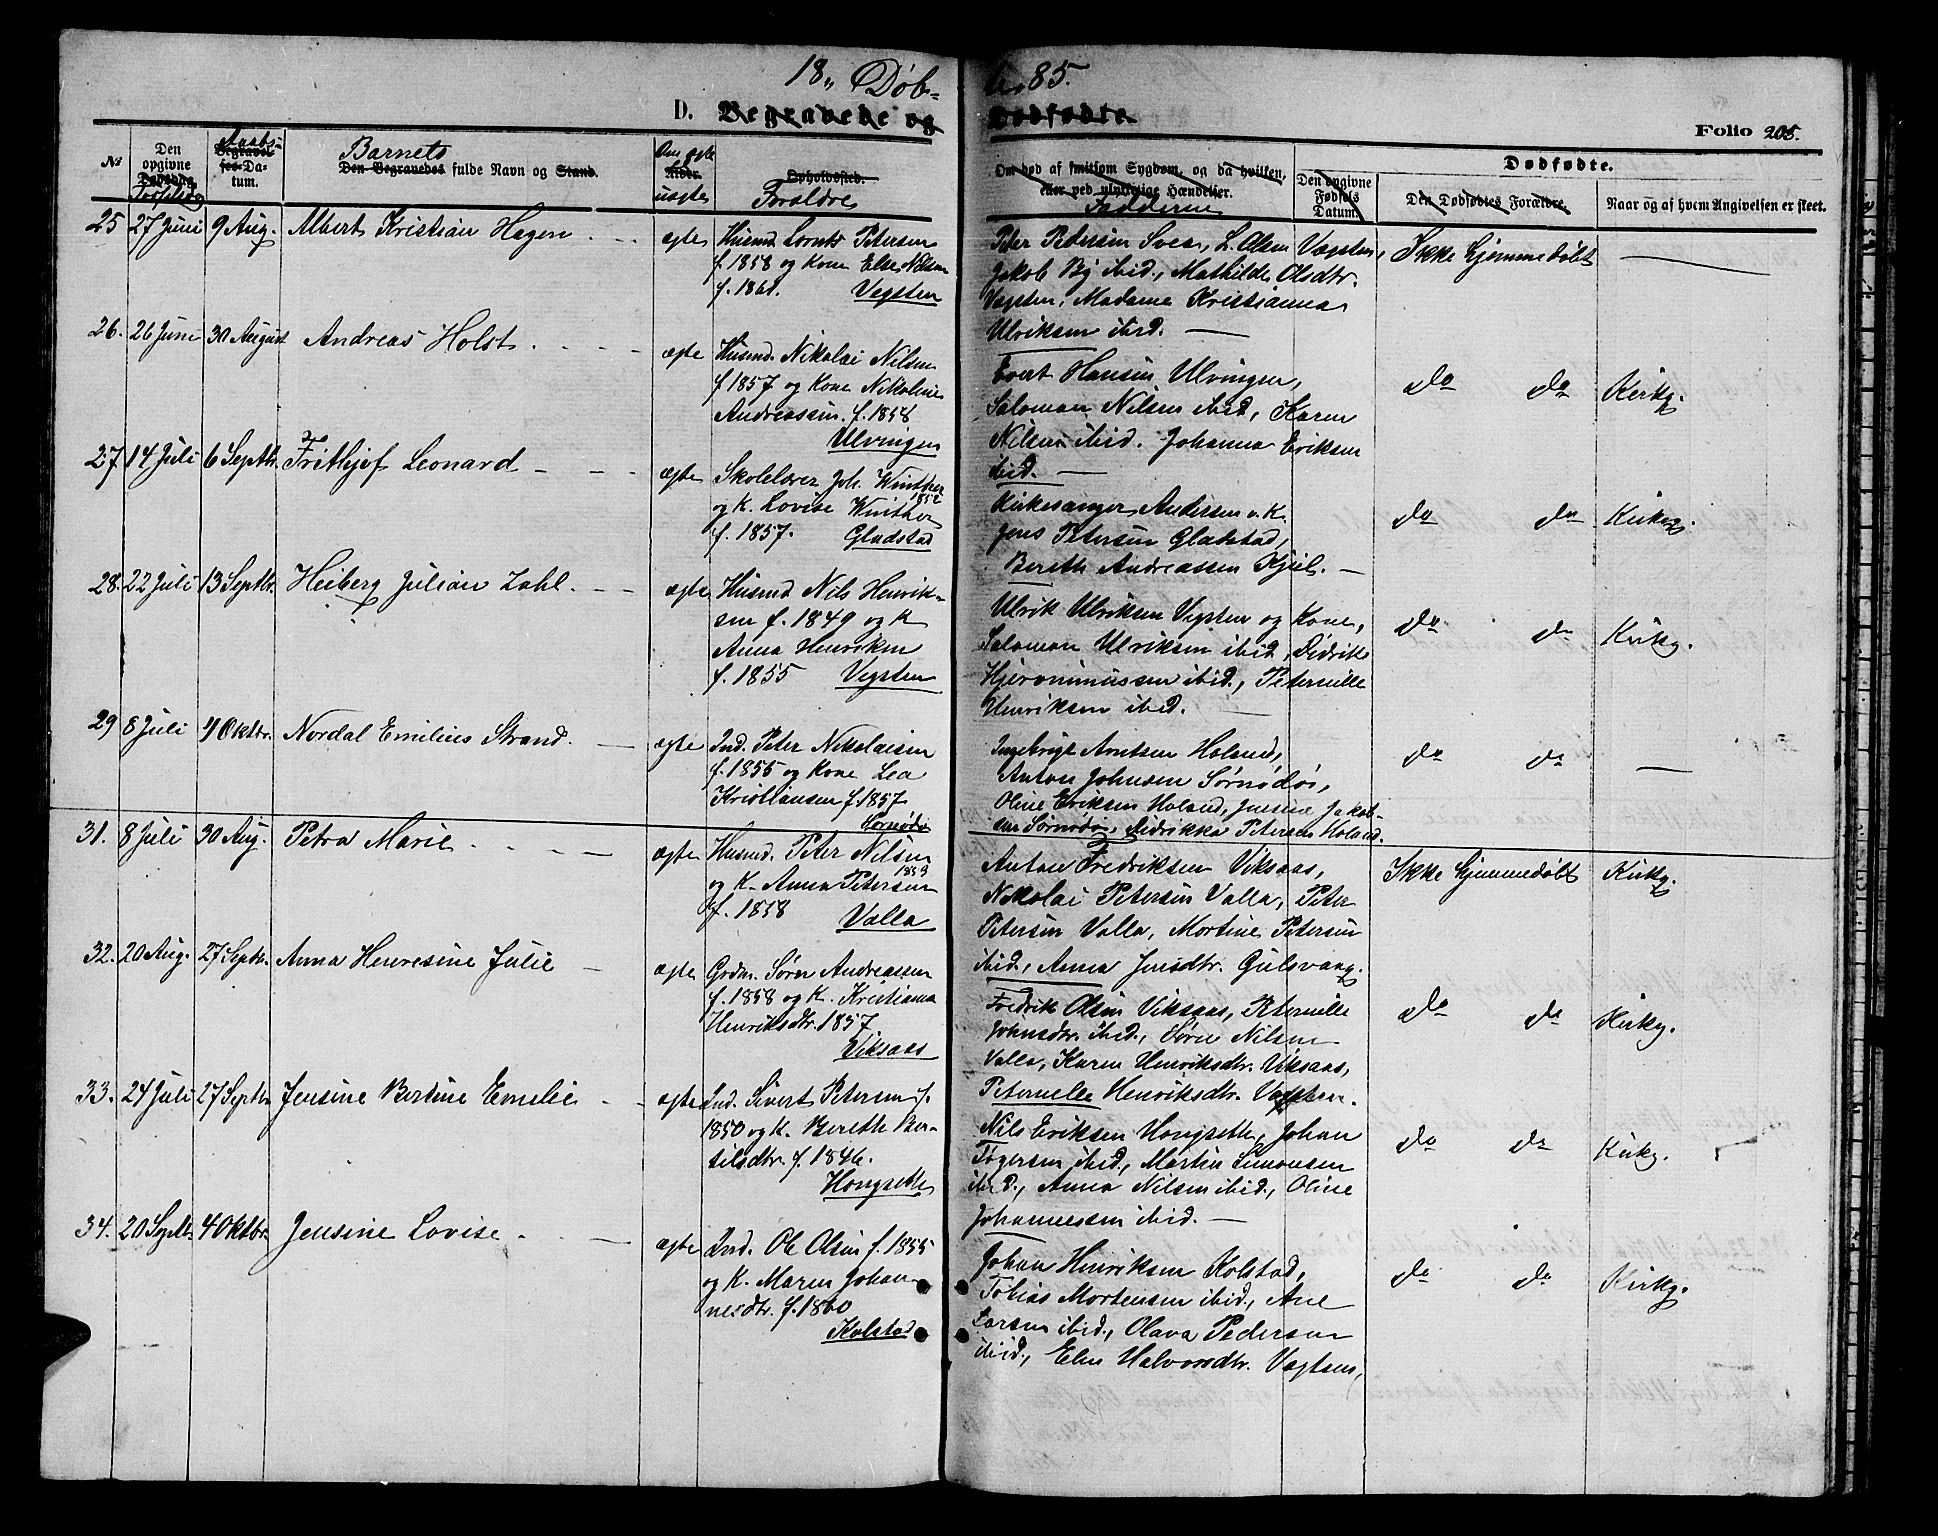 18„ Døb-
te 85.
D. Begravede og
Dødfødte.
Folio 205.
No
Den opgivne Dødsdag
Fødselsdag
Daabs-
Begravelses-Datum.
Barnets
Den Begravedes fulde Navn og Stand.
Om ægte
Alder.
uægte
Opholdssted.
Forældre
Om død af smitsom Sygdom, og da hvilken,
eller ved ulykkelige Hændelser.
Fadderne
Den opgivne Fødsels Datum.
Dødfødte.
Den Dødfødtes Forældre.
Naar og af hvem Angivelsen er skeet.
25 27 Juni 9 Aug. Albert Kristian Hagen
ægte Husmd. Petersen
f. 1858 og Kone Else Nilsen
f. 1861. Vegsten
Peter Pedersen L. Olsen Vegsten,
Jakob By ibid., Mathilde Olsdtr.
Vegsten, Madame Kristianna
Ulriksen ibid. —
Ikke hjemmedøbt —
26. 26 Juni 30 August Andreas Holst
ægte Husmd. Nikolai Nilsen
f 1857 og Kone Nikoline
Andreassen f. 1858
Ulvingen
Evert Hansen Ulvingen,
Salomon Nilsen ibid, Karen
Nilsen ibid. Johanna Eriksen
ibid. —
do do Kirkg.
27 14 Juli 6 Septbr. Frithjof Leonard
ægte Skolelærer Joh. Winther
1852
og K. Lovise Winther
f. 1857. Gladstad
Kirkesanger Andersen o. K.
Jens Petersen Gladstad,
Bereth Andreassen Kjul. —
do do Kirkg.
28. 22 Juli 13 Septbr. Heiberg Julian Zahl.
ægte Husmd Nils Henrik-
sen f. 1849 og K
Anna Henriksen
f. 1855 Vegsten
Ulrik Ulriksen Vegsten og Kone,
Salomon Ulriksen ibid, Didrikke
Hjeronimussen ibid., Peternille
Henriksen ibid. —
do do Kirkg.
29 8 Juli 4 Oktbr. Nordal Emilius Strand.
ægte Ind. Peter Nikolaisen
f. 1855 og Kone Lea
Kristiansen f. 1857,
Sørnødø
Ingebrigt Arntsen Holand,
Anton Johnsen Sørnødø,
Oline Eriksen Holand, Jensine Jakob-
sen Sørnødø, Didrikka Petersen Holand.
do do —
31. 8 Juli 30 Aug. Petra Marie
ægte Husmd. Peter Nilsen
1853
og K. Anna Petersen
f. 1858 Valla
Anton Fredriksen Viksaas,
Nikolai Petersen Valla, Peter
Petersen Valla, Mortine Petersen
ibid., Anna Jensdtr. Gulsvaag.
Ikke hjemmedøbt Kirkg.
32. 20 Aug. 27 Septbr. Anna Henresine Julie
ægte Grdm. Søren Andreassen
f. 1858 og K. Kristianna
Henriksdtr. 1857.
Viksaas
Fredrik Olsen Viksaas, Peternille
Johnsdtr. ibid., Sørie Nilsen
Valla, Karen Henriksdtr. Viksaas,
Peternelle Henriksdtr. Vegsten.
do do Kirkg.
33. 24 Juli 27 Septbr Jensine Bertine Emelie
ægte Ind. Sivert Petersen f.
1850 og K. Bereth Ber-
tilsdtr. f. 1846.
Hongseth
Nils Eriksen Hongseth, Johan
Tøgersen ibid., Martin Simonsen
ibid., Anna Nilsen ibid., Oline
Johannessen ibid. —
do do Kirkg.
34. 20 Septbr 4 Oktbr. Jensine Lovise
ægte Ind. Ole Olsen f. 1855
og K. Maren Johan-
nesdtr. f. 1860
Kolstad
Johan Henriksen Kolstad,
Tobias Mortensen ibid., Ane
Larsen ibid., Olava Pedersen
ibid., Elen Halvorsdtr. Vegsten,
do do Kirkg.